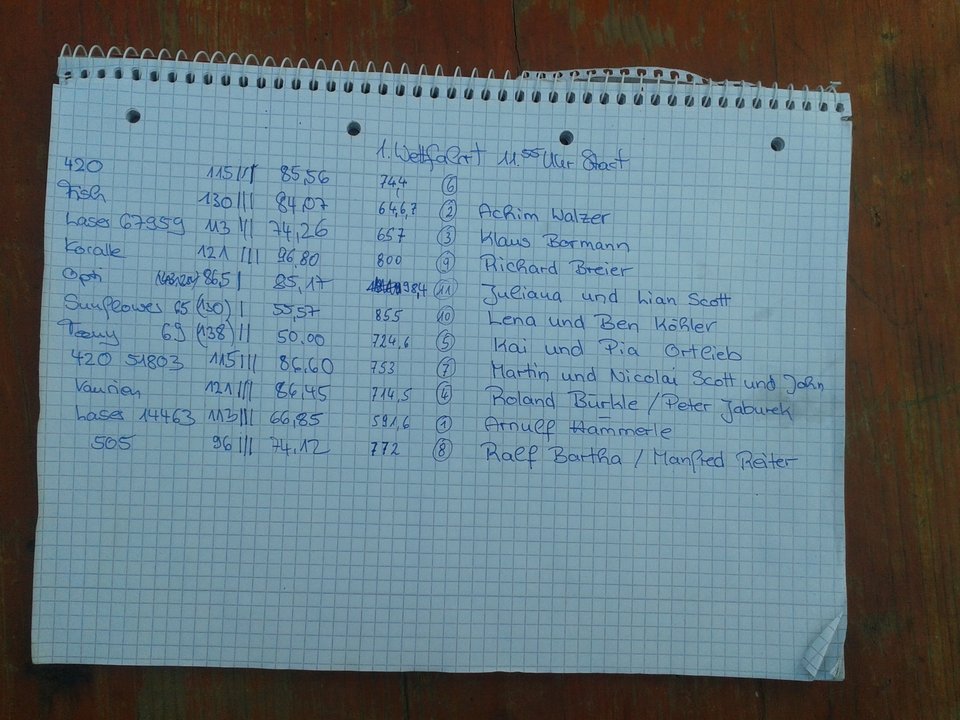 1. Wettfahrt 11.55 Uhr Start
420 115 ||| 85,56 744 ⑥
Fish 130 ||| 84,07 64,6,7 ② Achim Walzer
Laser 67959 113 ||| 74,26 657 ③ Klaus Bormann
Koralle 121 ||| 96,80 800 ⑨ Richard Breier
Opti 86,5 | 85,17 98,4 ⑪ Juliana und Lian Scott
Sunflower 65 (130) | 55,57 855 ⑩ Lena und Ben Köhler
Teeny 69 (138) || 50,00 724,6 ⑤ Kai und Pia Ortlieb
420 51803 115 ||| 86,60 753 ⑦ Martin und Nicolai Scott und John
Vaurien 121 ||| 86,45 714,5 ④ Roland Bürkle / Peter Jaburek
Laser 14463 113 ||| 66,85 591,6 ① Arnulf Hämmerle
505 96 ||| 74,12 772 ⑧ Ralf Bartha / Manfred Reiter